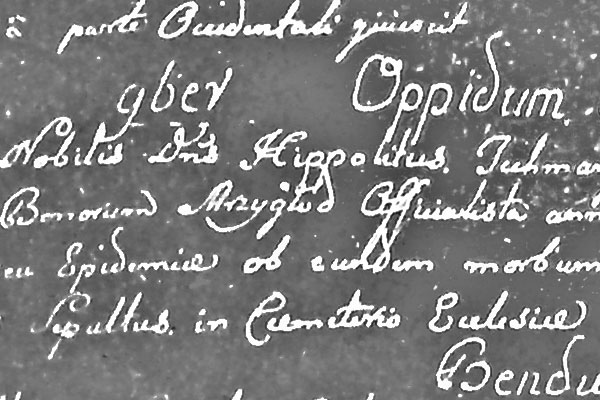 a parte Occidentali quiescit
9ber Oppidum.
Nobilis Dns Hippolitus.
Bonorum Mrzygłod Officialista
Epidemiæ ob eundem morbum
Sepultus. in Cœmeterio Ecclesiæ